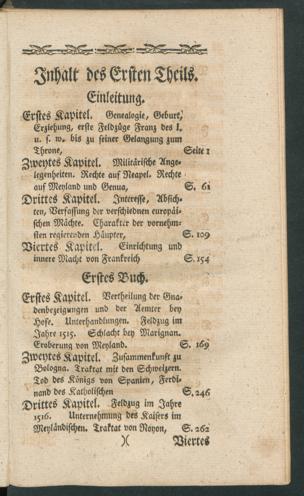 Inhalt des Ersten Theils.
Einleitung.
Erstes Kapitel. Genealogie, Geburt,
Erziehung, erste Feldzüge Franz des I.
u. s. w. bis zu seiner Gelangung zum
Throne, Seite 1
Zweytes Kapitel. Militärische Ange-
legenheiten. Rechte auf Neapel. Rechte
auf Meyland und Genua, S. 61
Drittes Kapitel. Interesse, Absich-
ten, Verfassung der verschiednen europäi-
schen Mächte. Charakter der vornehm-
sten regierenden Häupter, S. 109
Viertes Kapitel. Einrichtung und
innere Macht von Frankreich S. 154
Erstes Buch.
Erstes Kapitel. Vertheilung der Gna-
denbezeigungen und der Aemter bey
Hofe. Unterhandlungen. Feldzug im
Jahre 1515. Schlacht bey Marignan.
Eroberung von Meyland. S. 169
Zweytes Kapitel. Zusammenkunft zu
Bologna. Traktat mit den Schweizern.
Tod des Königs von Spanien, Ferdi-
nand des Katholischen S. 246
Drittes Kapitel. Feldzug im Jahre
1516. Unternehmung des Kaisers im
Meyländischen. Traktat von Noyon, S. 262
)( Viertes